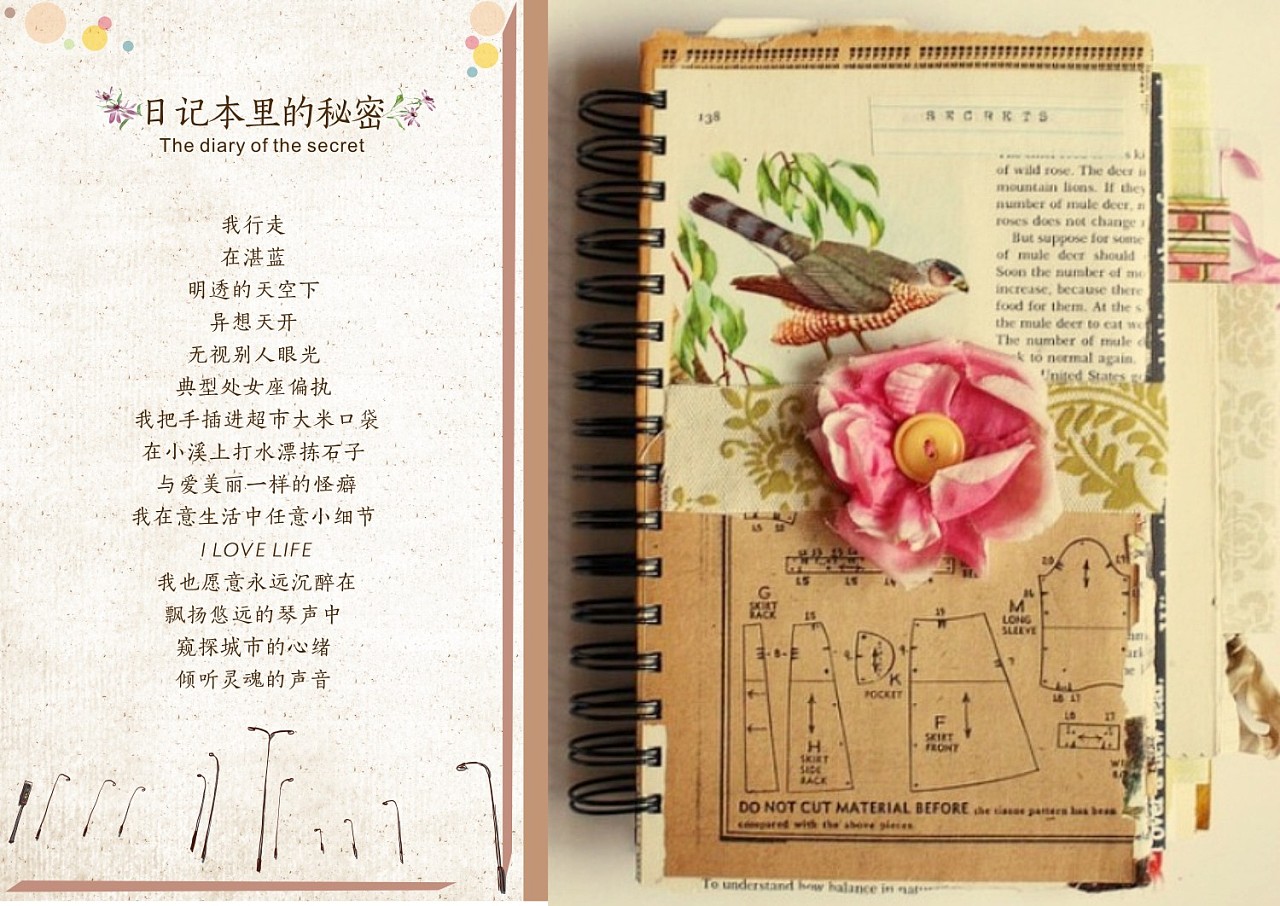 日记本里的秘密
The diary of the secret
我行走
在湛蓝
明透的天空下
异想天开
无视别人眼光
典型处女座偏执
我把手插进超市大米口袋
在小溪上打水漂拣石子
与爱美丽一样的怪癖
我在意生活中任意小细节
I LOVE LIFE
我也愿意永远沉醉在
飘扬悠远的琴声中
窥探城市的心绪
倾听灵魂的声音
138
SECRETS
of wild rose. The deer
mountain lions. If they
number of mule deer,
roses does not change
But suppose for some
of mule deer should
Soon the number of
increase, because there
food for them. At the
the mule deer to eat
The number of mule
to normal again.
United States
15 15 15
G
SKIRT
BACK
15
H
SKIRT
SIDE
BACK
K
POCKET
F
SKIRT
FRONT
M
LONG
SLEEVE
16 17
DO NOT CUT MATERIAL BEFORE the tissue pattern has been
compared with the above pieces.
To understand how balance in